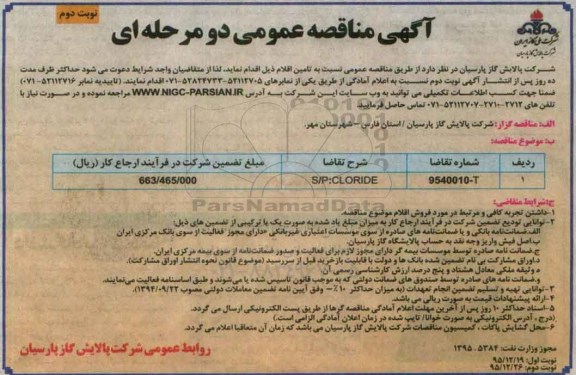 نوبت دوم
آگهی مناقصه عمومی دو مرحله ای
شرکت ملی گاز ایران
شرکت پالایش گاز پارسیان
شرکت پالایش گاز پارسیان در نظر دارد از طریق مناقصه عمومی نسبت به تامین اقلام ذیل اقدام نماید. لذا از متقاضیان واجد شرایط دعوت می شود حداکثر ظرف مدت
ده روز پس از انتشار آگهی نوبت دوم نسبت به اعلام آمادگی از طریق یکی از نمابرهای ۵۲۱۱۲۷۰۵-۵۲۸۲۴۷۳۳-۰۷۱ اقدام نمایند. (تاییدیه نمابر ۵۲۱۱۲۷۱۶-۰۷۱)
ضمنا جهت کسب اطلاعات تکمیلی می توانید به وب سایت این شرکت به آدرس WWW.NIGC-PARSIAN.IR مراجعه نموده و در صورت نیاز با
تلفن های ۲۷۱۲-۲۷۱۰-۵۲۱۱۲۷۰۷-۰۷۱ تماس حاصل فرمایید.
الف: مناقصه گزار: شرکت پالایش گاز پارسیان / استان فارس - شهرستان مهر.
ب: موضوع مناقصه:
ردیف شماره تقاضا شرح تقاضا مبلغ تضمین شرکت در فرآیند ارجاع کار (ریال)
۱ 9540010-T S/P:CLORIDE 663/465/000
ParsNamadData
ج: شرایط متقاضی:
۱-داشتن تجربه کافی و مرتبط در مورد فروش اقلام موضوع مناقصه.
۲-توانایی تودیع تضمین شرکت در فرآیند ارجاع کار به میزان مبلغ یاد شده به صورت یک یا ترکیبی از تضمین های ذیل:
الف.ضمانت نامه بانکی و یا ضمانت نامه های صادره از سوی موسسات اعتباری غیربانکی دارای مجوز فعالیت از سوی بانک مرکزی ایران
ب.اصل فیش واریز وجه نقد به حساب پالایشگاه گاز پارسیان.
ج.ضمانت نامه صادره توسط موسسات بیمه گر دارای مجوز لازم برای فعالیت و صدور ضمانت نامه از سوی بیمه مرکزی ایران.
د.اوراق مشارکت بی نام تضمین شده بانک ها و دولت با قابلیت بازخرید قبل از سررسید (موضوع قانون نحوه انتشار اوراق مشارکت).
ه.وثیقه ملکی معادل هشتاد و پنج درصد ارزش کارشناسی رسمی آن
و.ضمانت نامه های صادره توسط صندوق های ضمانت دولتی که به موجب قانون تاسیس شده یا می شوند و طبق اساسنامه فعالیت می نمایند.
۳-توانایی تهیه و تسلیم تضمین انجام تعهدات (به میزان حداکثر ۱۰٪ - وفق آیین نامه تضمین معاملات دولتی مصوب ۱۳۹۴/۰۹/۲۲)
۴-ارائه پیشنهادات قیمت به صورت ریالی می باشد.
۵-اسناد حداکثر ۱۰ روز پس از آخرین مهلت اعلام آمادگی مناقصه گرها از طریق پست الکترونیکی ارسال می گردد.
(درج آدرس الکترونیکی به صورت خوانا/ تایپ شده در زمان اعلان آمادگی الزامی است.)
۶-محل گشایش پاکات ، کمیسیون مناقصات شرکت پالایش گاز پارسیان می باشد که زمان آن متعاقبا اعلام می گردد.
مجوز وزارت نفت: ۵۳۸۴ .۱۳۹۵
نوبت اول: ۹۵/۱۲/۱۹
نوبت دوم: ۹۵/۱۲/۲۶
روابط عمومی شرکت پالایش گاز پارسیان